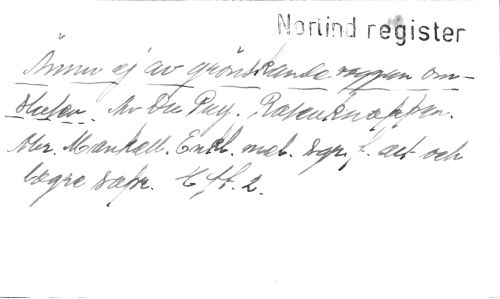 Norlind register
Ännu ej av grönskande vggen om-
sluten. Av Du Puy. Rosenknoppen.
Abr. Mankell. Enkl. mel. sgr. f. alt och
lägre sopr. Hft. 2.